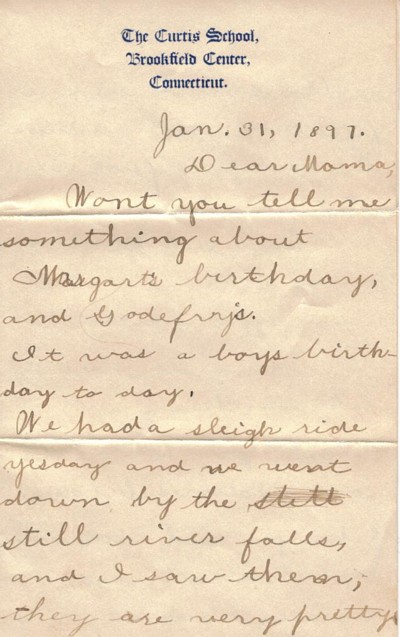 The Curtis School,
Brookfield Center,
Connecticut.
Jan. 31, 1897.
Dear Mama,
Wont you tell me
something about
Margarts birthday,
and Godefrys.
It was a boys birth-
day to day.
We had a sleigh ride
yesday and we went
down by the
still river falls,
and I saw them,
they are very pretty